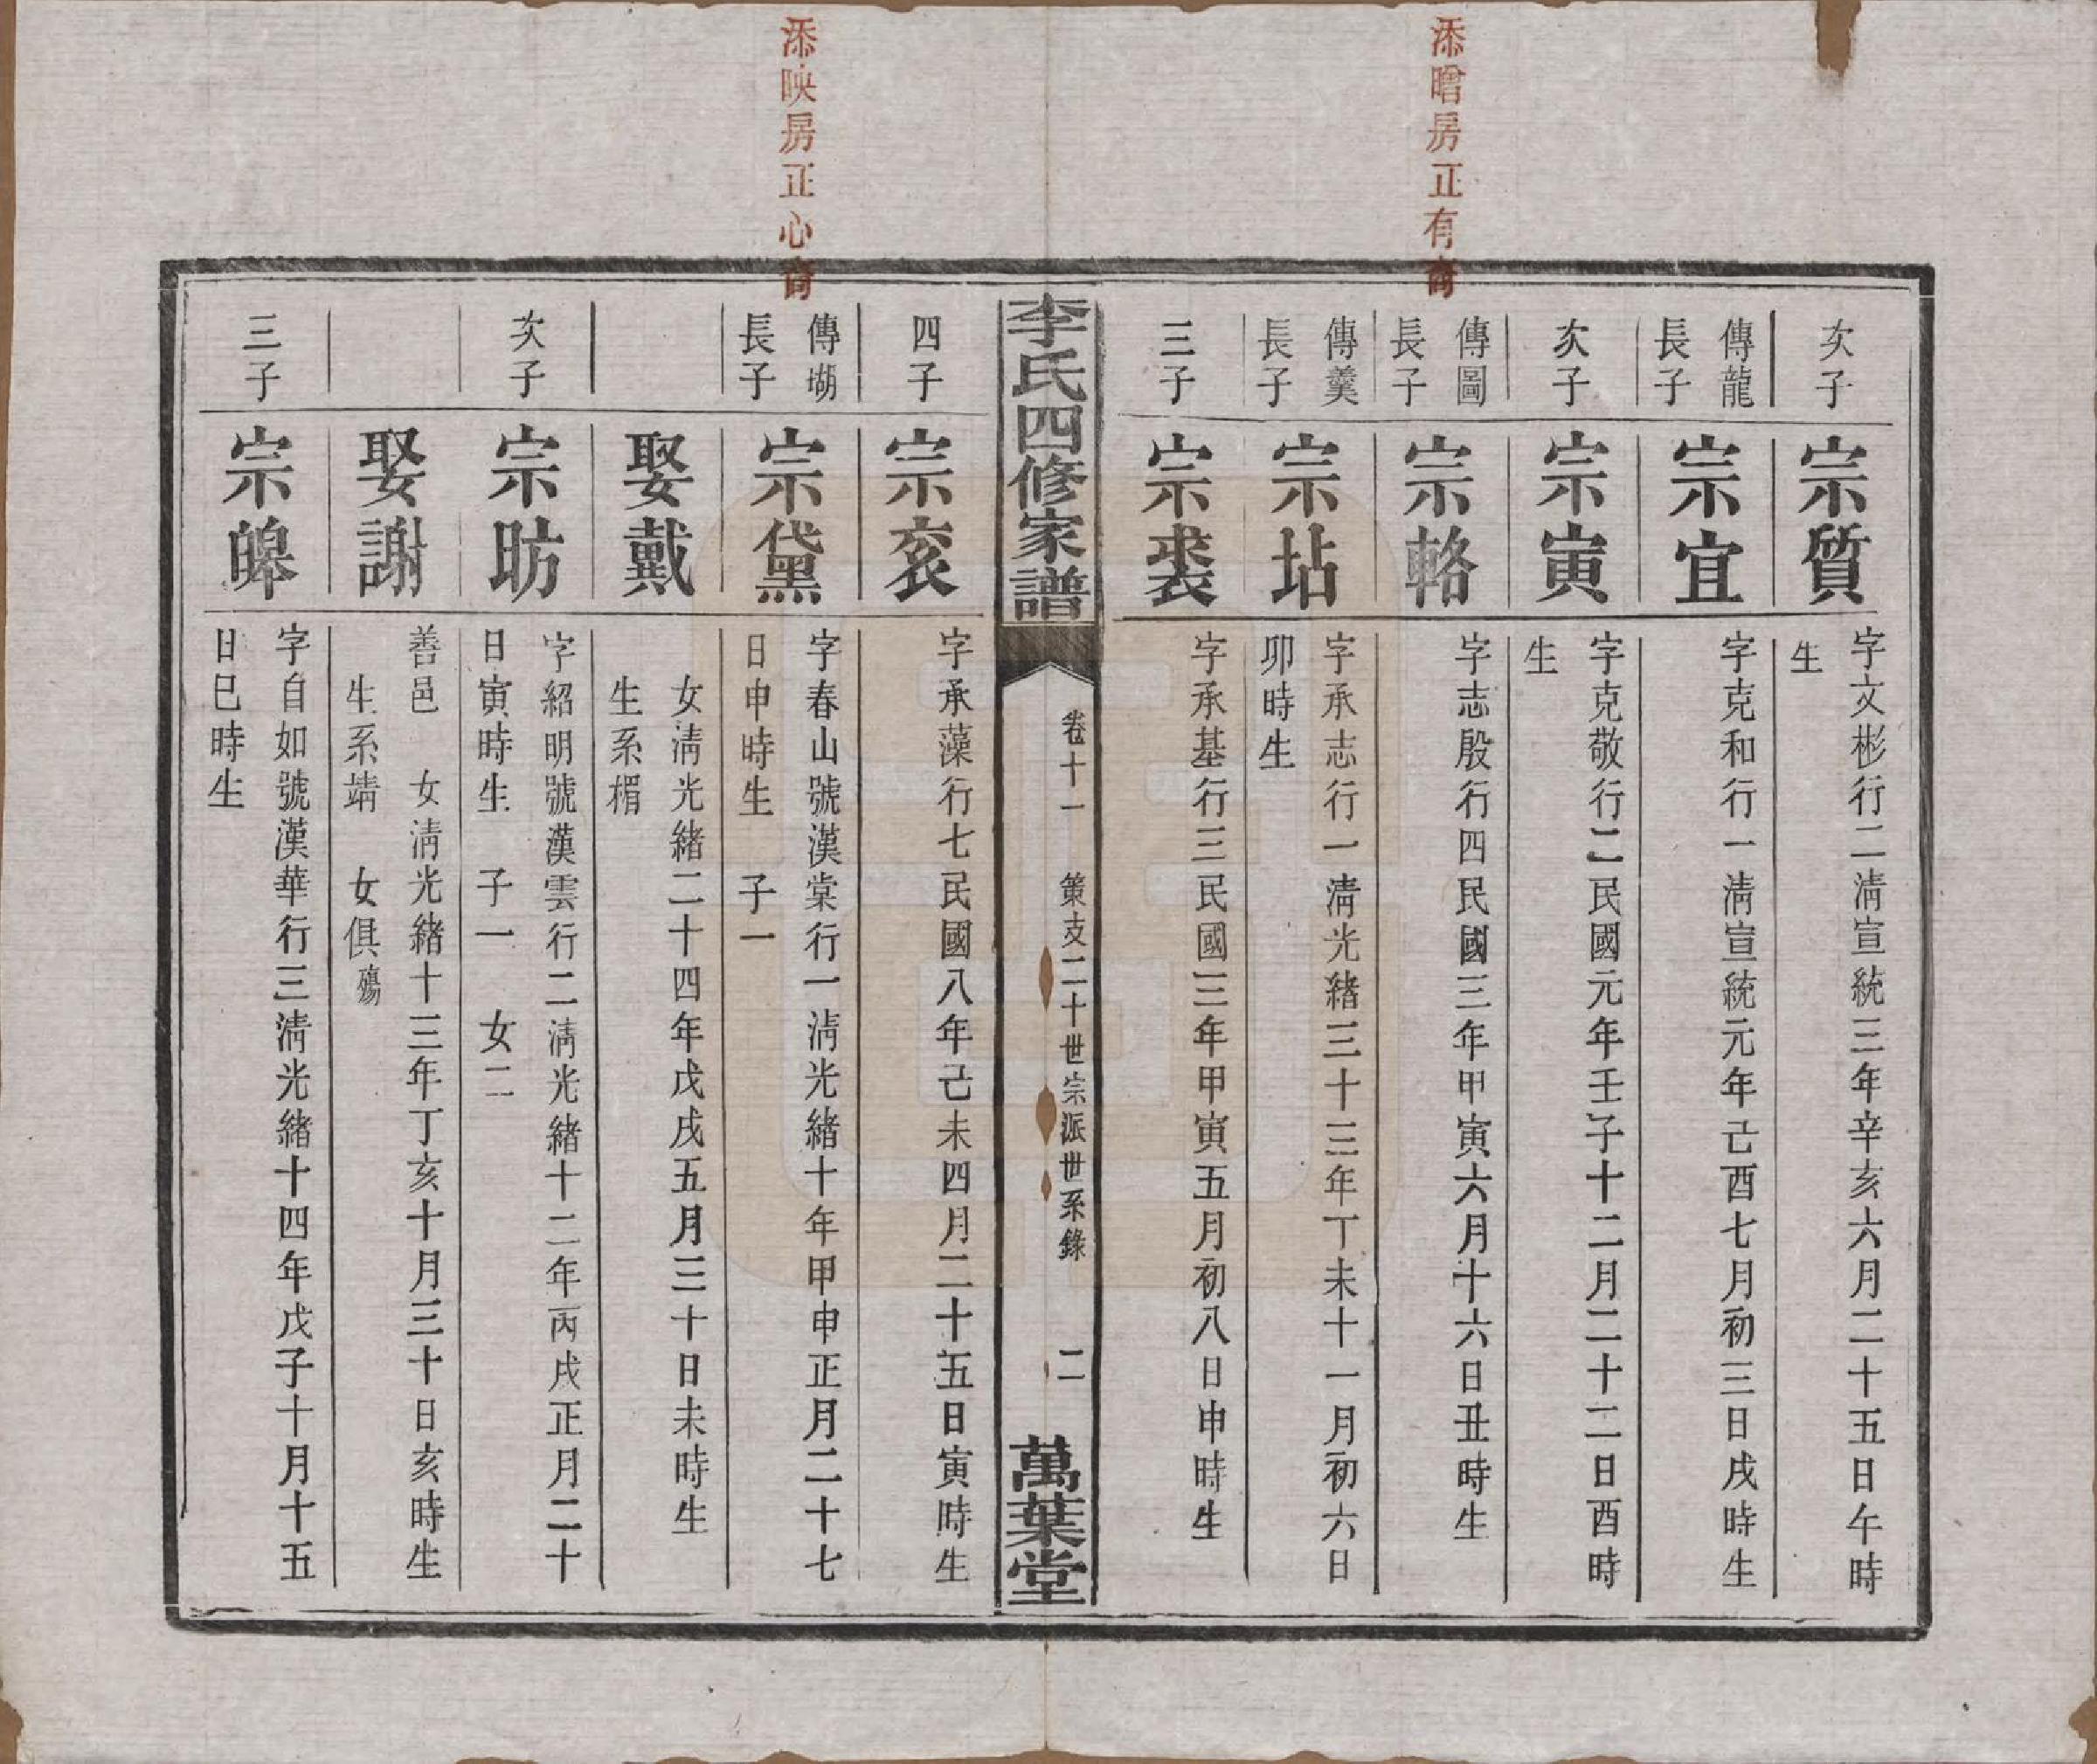 添瞻房正有裔
次子
宗質
字文彬行二淸宣統三年辛亥六月二十五日午時
生
傳龍
長子
宗宜
字克和行一淸宣統元年己酉七月初三日戌時生
次子
宗寅
字克敬行二民國元年壬子十二月二十二日酉時
生
傳圖
長子
宗輅
字志殷行四民國三年甲寅六月十六日丑時生
傳羹
長子
宗坫
字承志行一淸光緖三十三年丁未十一月初六日
卯時生
三子
宗裘
字承基行三民國三年甲寅五月初八日申時生
李氏四修家譜
卷十一 策支二十世宗派世系錄 二
萬葉堂
添映房正心裔
四子
宗袞
字承藻行七民國八年己未四月二十五日寅時生
傳塨
長子
宗黛
字春山號漢棠行一淸光緖十年甲申正月二十七
日申時生 子一
娶戴
女淸光緖二十四年戊戌五月三十日未時生
生系楣
次子
宗昉
字紹明號漢雲行二淸光緖十二年丙戌正月二十
日寅時生 子一 女二
娶謝
善邑 女淸光緖十三年丁亥十月三十日亥時生
生系靖 女俱殤
三子
宗皞
字自如號漢華行三淸光緖十四年戊子十月十五
日巳時生